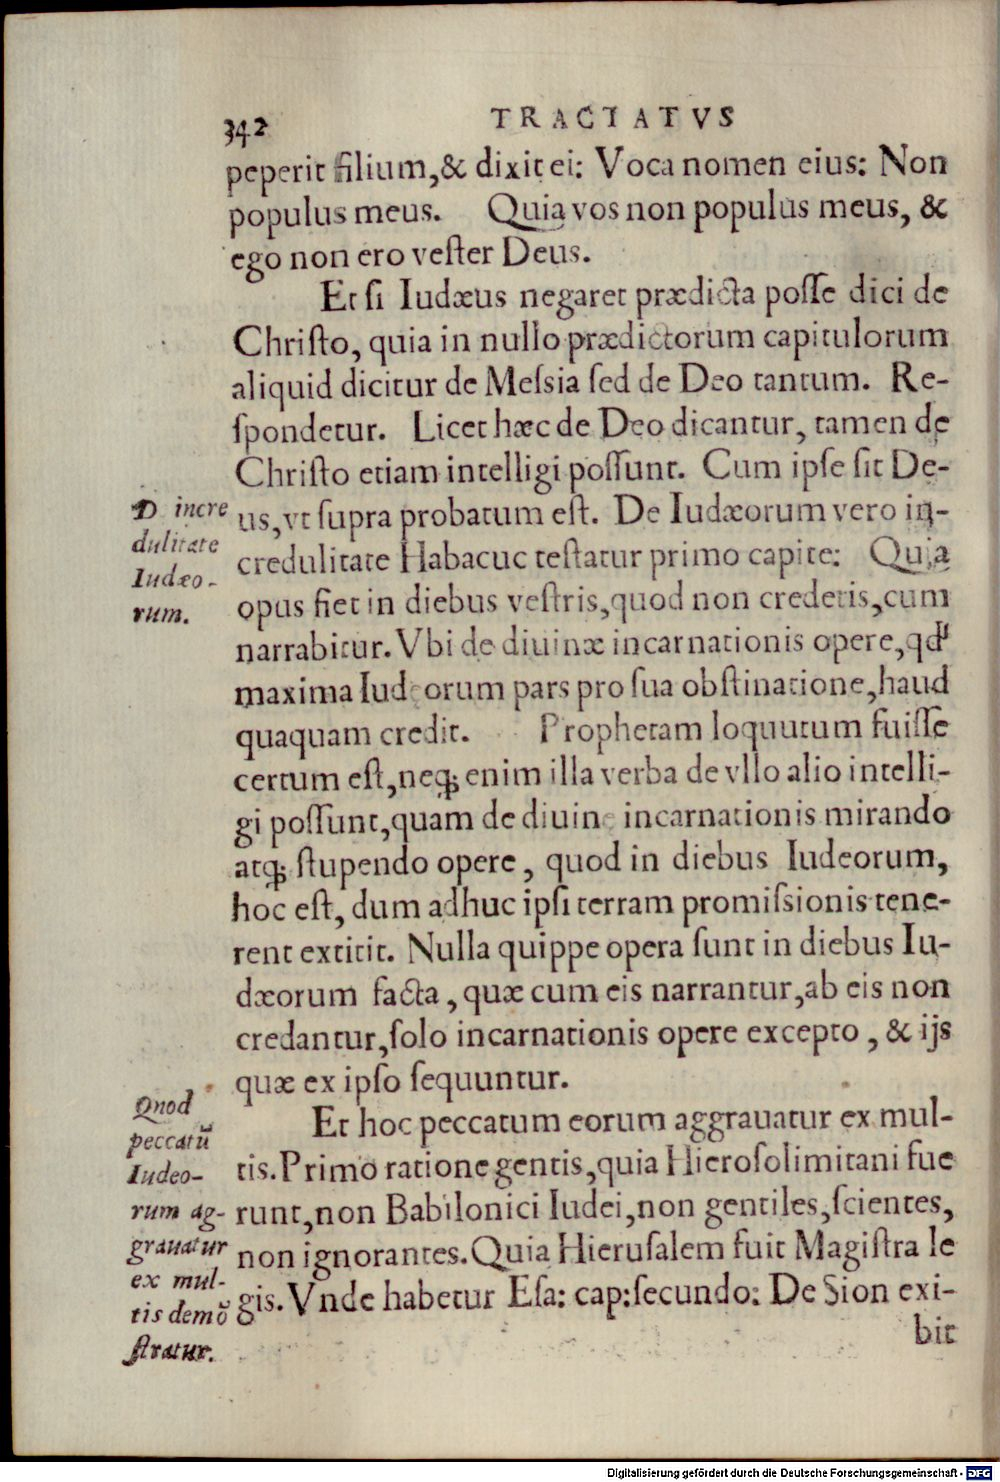 342 TRACTATVS
peperit filium,& dixit ei: Voca nomen eius: Non
populus meus. Quia vos non populus meus, &
ego non ero veſter Deus.
Et ſi Iudæus negaret prædicta poſſe dici de
Chriſto, quia in nullo prædictorum capitulorum
aliquid dicitur de Meſsia ſed de Deo tantum. Re-
ſpondetur. Licet hæc de Deo dicantur, tamen de
Chriſto etiam intelligi poſſunt. Cum ipſe ſit De-
us,vt ſupra probatum eſt. De Iudæorum vero in-
credulitate Habacuc teſtatur primo capite: Quia
opus fiet in diebus veſtris,quod non credetis,cum
narrabitur. Vbi de diuinæ incarnationis opere,qd'
maxima Iudeorum pars pro ſua obſtinatione,haud
quaquam credit. Prophetam loquutum fuiſſe
certum eſt,neq; enim illa verba de vllo alio intelli-
gi poſſunt,quam de diuine incarnationis mirando
atq; ſtupendo opere, quod in diebus Iudeorum,
hoc eſt, dum adhuc ipſi terram promiſsionis tene-
rent extitit. Nulla quippe opera ſunt in diebus Iu-
dæorum facta, quæ cum eis narrantur,ab eis non
credantur,ſolo incarnationis opere excepto, & ijs
quæ ex ipſo ſequuntur.
Et hoc peccatum eorum aggrauatur ex mul-
tis. Primo ratione gentis,quia Hieroſolimitani fue
runt,non Babilonici Iudei,non gentiles,ſcientes,
non ignorantes. Quia Hieruſalem fuit Magiſtra le
gis. Vnde habetur Eſa: cap:ſecundo: De Sion exi-
bit
D incre
dulitate
Iudæo-
rum.
Quod
peccatū
Iudeo-
rum ag-
grauatur
ex mul-
tis demō
ſtratur.
Digitalisierung gefördert durch die Deutsche Forschungsgemeinschaft - DFG